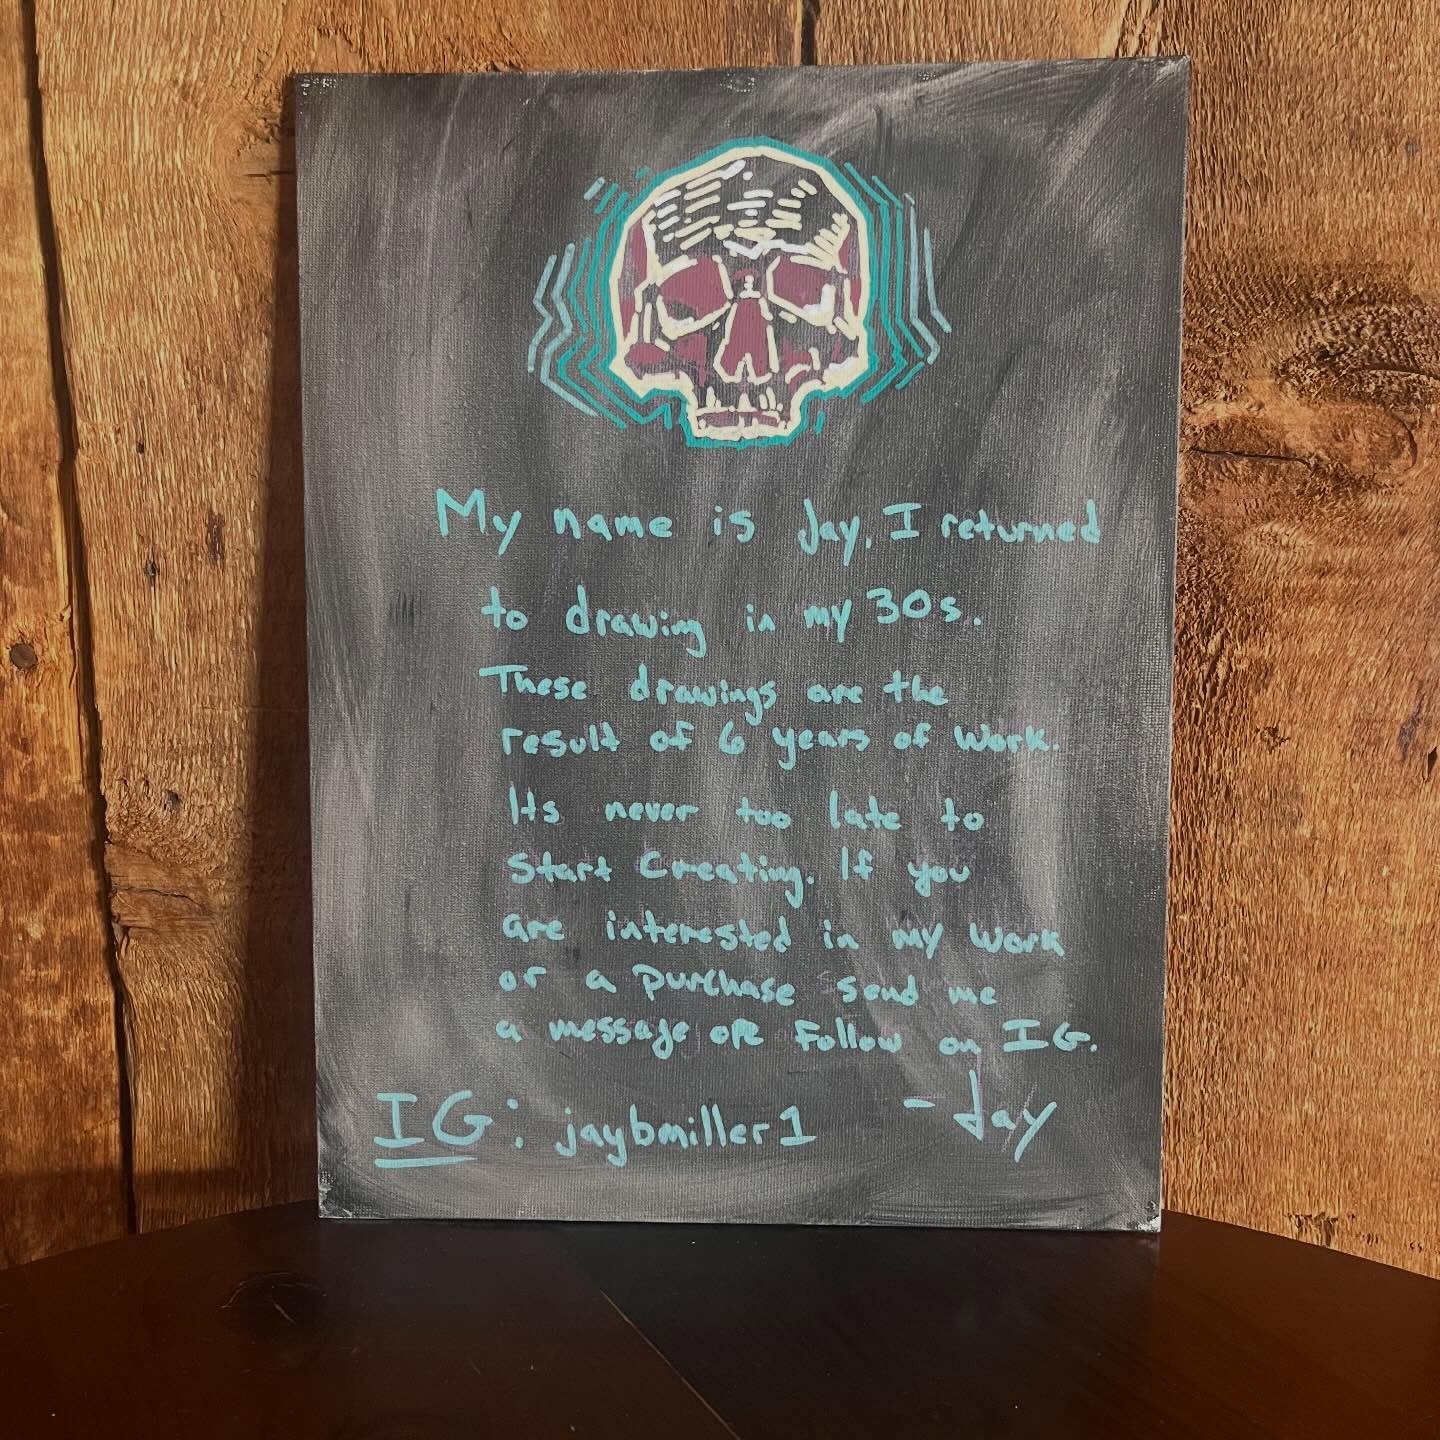 My name is Jay, I returned
to drawing in my 30s.
These drawings are the
result of 6 years of work.
Its never too late to
Start Creating. If you
are interested in my work
or a purchase send me
a message ore Follow on IG.
IG: jaybmiller1 - Jay